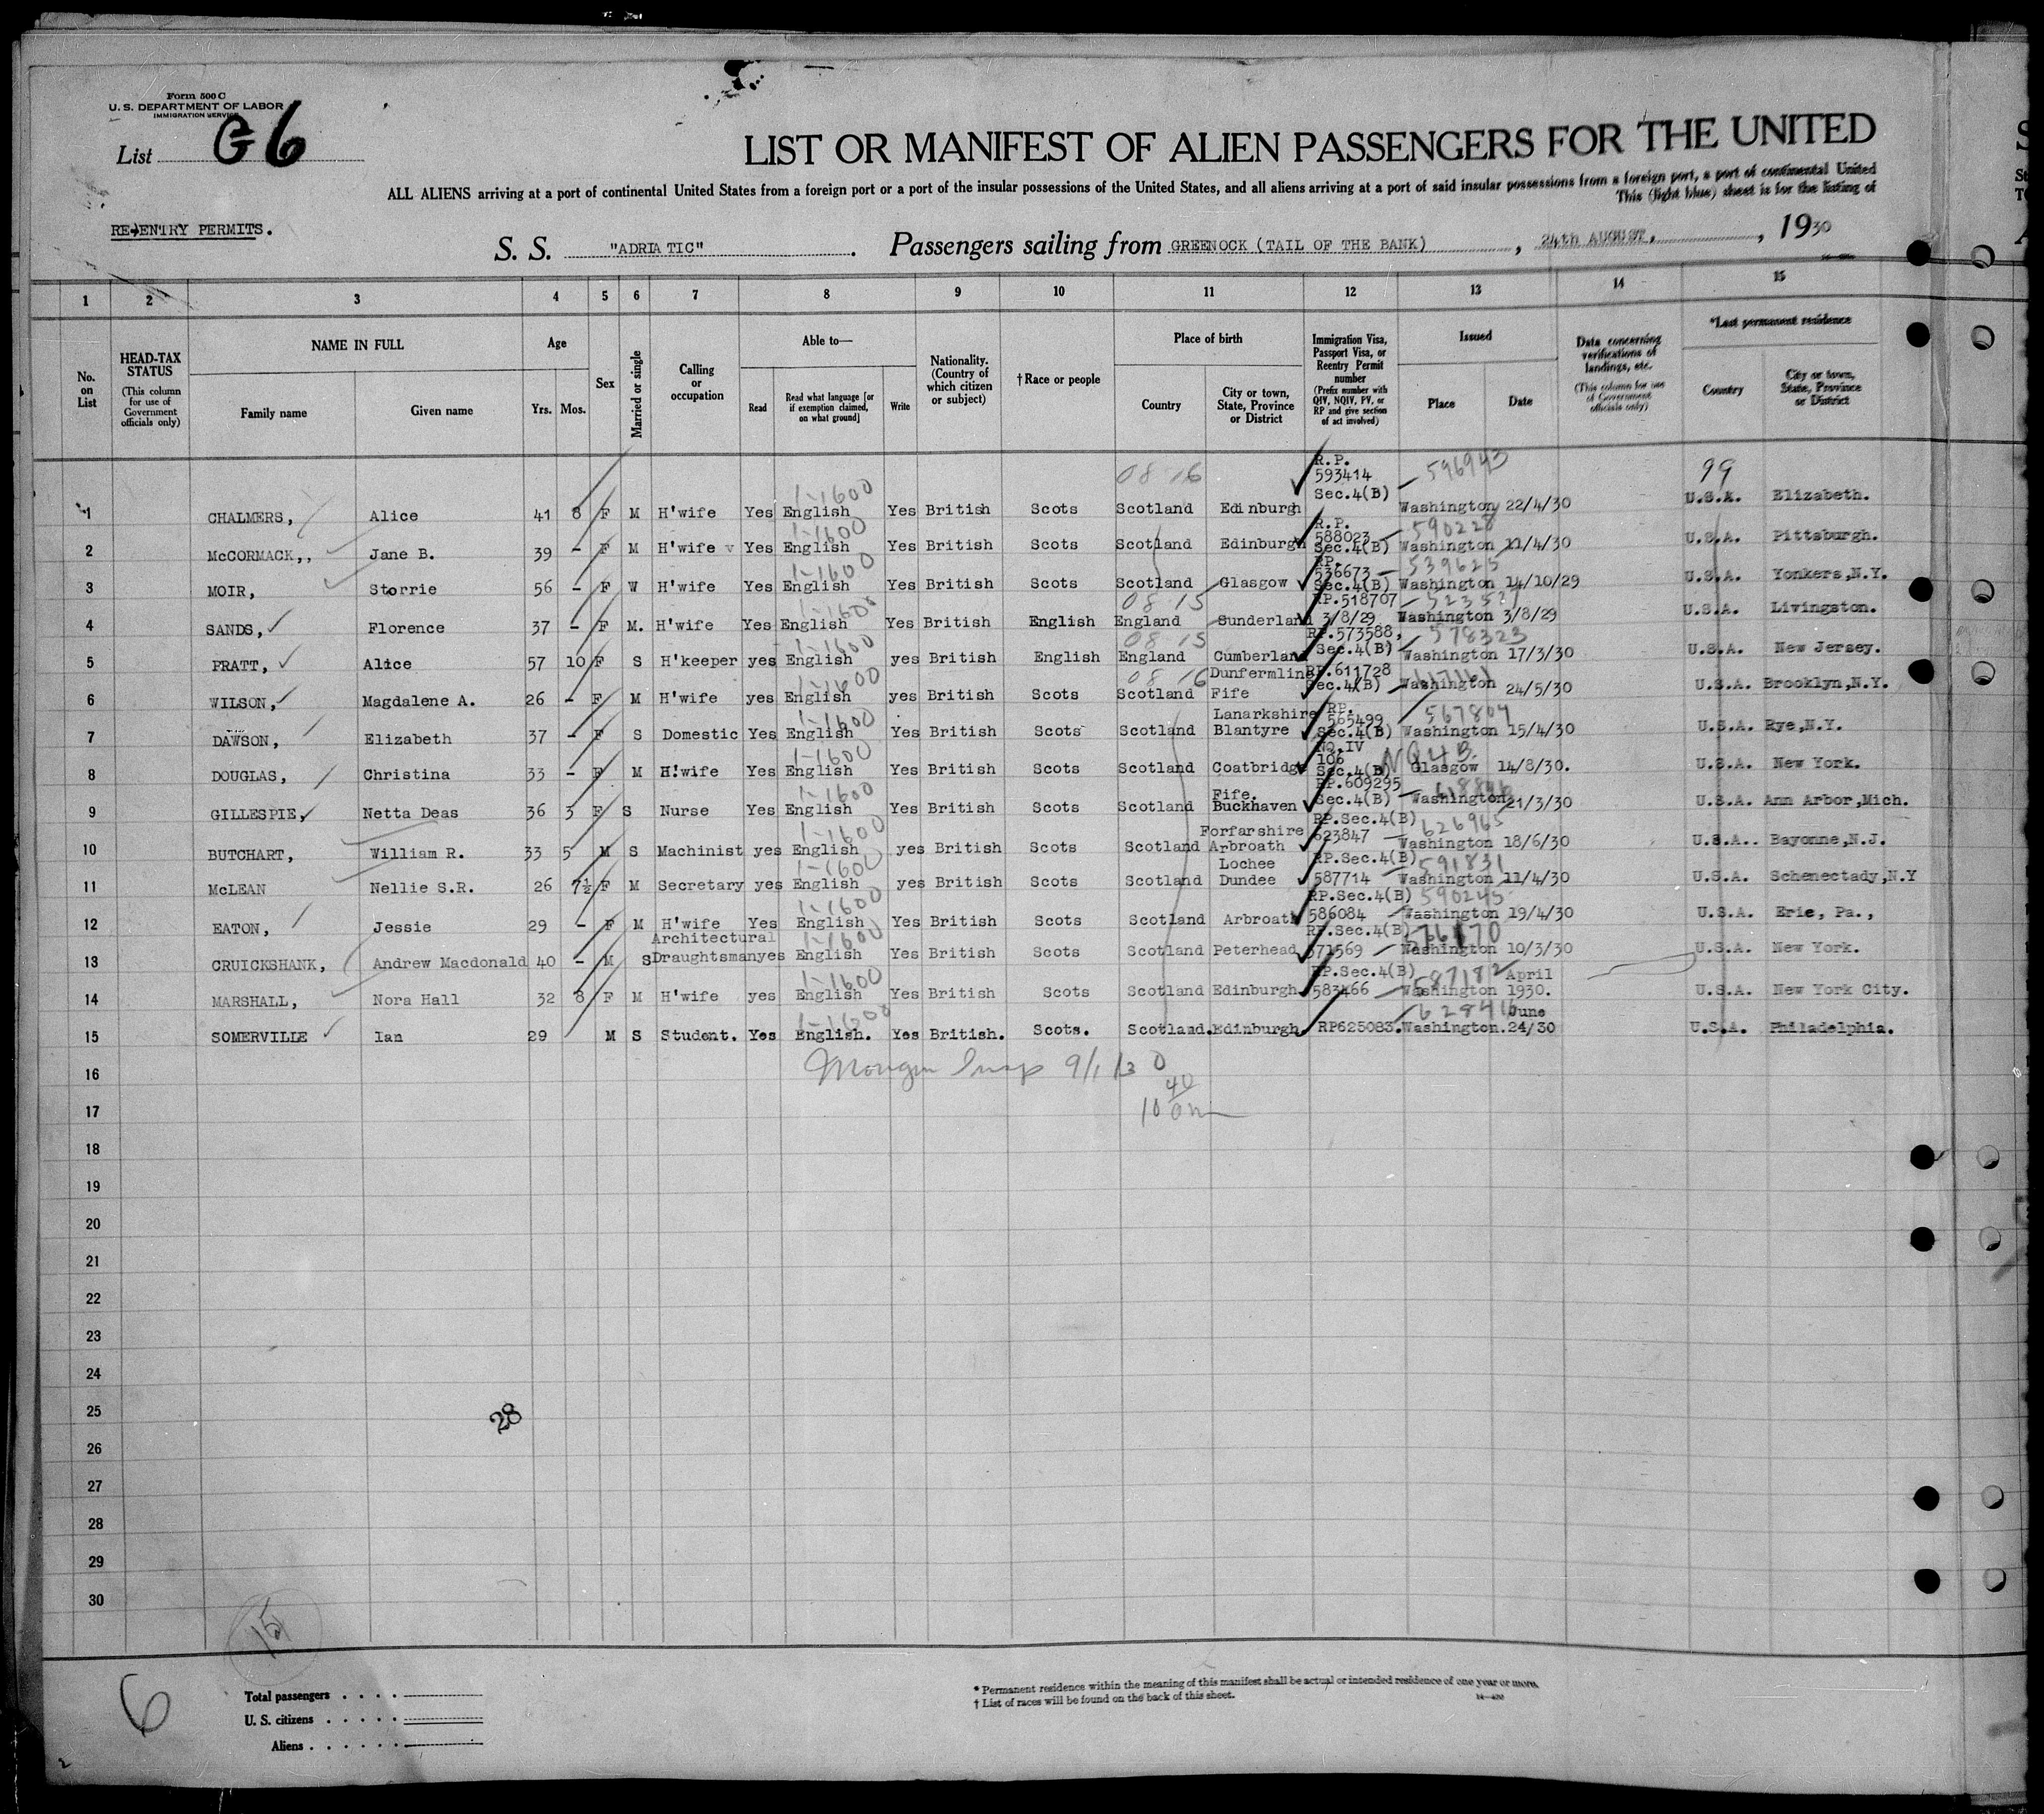 Form 500 C
U. S. DEPARTMENT OF LABOR
IMMIGRATION SERVICE
List G 6
LIST OR MANIFEST OF ALIEN PASSENGERS FOR THE UNITED
ALL ALIENS arriving at a port of continental United States from a foreign port or a port of the insular possessions of the United States, and all aliens arriving at a port of said insular possessions from a foreign port, a port of continental United
This (light blue) sheet is for the listing of
RE-ENTRY PERMITS.
S. S. "ADRIATIC". Passengers sailing from GREENOCK (TAIL OF THE BANK), 24th AUGUST, , 1930
1 2 3 4 5 6 7 8 9 10 11 12 13 14 15
No. on List
HEAD-TAX STATUS (This column for use of Government officials only)
NAME IN FULL
Family name Given name
Age
Yrs. Mos.
Sex
Married or single
Calling or occupation
Able to—
Read Read what language [or if exemption claimed, on what ground] Write
Nationality. (Country of which citizen or subject)
†Race or people
Place of birth
Country City or town, State, Province or District
Immigration Visa, Passport Visa, or Reentry Permit number (Prefix number with QIV, NQIV, PV, or RP and give section of act involved)
Issued
Place Date
Data concerning verifications of landings, etc. (This column for use of Government officials only)
*Last permanent residence
Country City or town, State, Province or District
1 CHALMERS, Alice 41 8 F M H'wife Yes English 1-1600 Yes British Scots Scotland 08 16 Edinburgh R.P. 593414 Sec.4(B) 596943 Washington 22/4/30 99 U.S.A. Elizabeth.
2 McCORMACK,, Jane B. 39 - F M H'wife v Yes English 1-1600 Yes British Scots Scotland Edinburgh R.P. 588023 Sec.4(B) 590228 Washington 11/4/30 U.S.A. Pittsburgh.
3 MOIR, Storrie 56 - F W H'wife Yes English 1-1600 Yes British Scots Scotland Glasgow RP. 536673 Sec.4(B) 539625 Washington 14/10/29 U.S.A. Yonkers,N.Y.
4 SANDS, Florence 37 - F M. H'wife Yes English 1-1600 Yes British English England 08 15 Sunderland RP.518707 3/8/29 Washington 3/8/29 U.S.A. Livingston.
5 PRATT, Alice 57 10 F S H'keeper yes English 1-1600 yes British English England 08 15 Cumberland RP.573588, Sec.4(B) 578323 Washington 17/3/30 U.S.A. New Jersey.
6 WILSON, Magdalene A. 26 - F M H'wife yes English 1-1600 yes British Scots Scotland 08 16 Dunfermline Fife RP.611728 Sec.4(B) Washington 24/5/30 U.S.A. Brooklyn,N.Y.
7 DAWSON, Elizabeth 37 - F S Domestic Yes English 1-1600 Yes British Scots Scotland Lanarkshire Blantyre RP. 565499 Sec.4(B) 567804 Washington 15/4/30 U.S.A. Rye,N.Y.
8 DOUGLAS, Christina 33 - F M H!wife Yes English 1-1600 Yes British Scots Scotland Coatbridge NQ.IV 106 Sec.4(B) NQ4B. Glasgow 14/8/30. U.S.A. New York.
9 GILLESPIE, Netta Deas 36 3 F S Nurse Yes English 1-1600 Yes British Scots Scotland Fife. Buckhaven RP.609295 Sec.4(B) Washington 21/3/30 U.S.A. Ann Arbor,Mich.
10 BUTCHART, William R. 33 5 M S Machinist yes English 1-1600 yes British Scots Scotland Forfarshire Arbroath RP.Sec.4(B) 623847 626965 Washington 18/6/30 U.S.A.. Bayonne,N.J.
11 McLEAN Nellie S.R. 26 7½ F M Secretary yes English 1-1600 yes British Scots Scotland Lochee Dundee RP.Sec.4(B) 587714 591831 Washington 11/4/30 U.S.A. Schenectady,N.Y
12 EATON, Jessie 29 - F M H'wife Yes English 1-1600 Yes British Scots Scotland Arbroath RP.Sec.4(B) 586084 590245 Washington 19/4/30 U.S.A. Erie, Pa.,
13 CRUICKSHANK, Andrew Macdonald 40 - M S Architectural Draughtsman yes English 1-1600 Yes British Scots Scotland Peterhead RP.Sec.4(B) 571569 Washington 10/3/30 U.S.A. New York.
14 MARSHALL, Nora Hall 32 8 F M H'wife yes English 1-1600 Yes British Scots Scotland Edinburgh RP.Sec.4(B) 583466 587182 Washington April 1930. U.S.A. New York City.
15 SOMERVILLE Ian 29 M S Student. Yes English. 1-1600 Yes British. Scots. Scotland. Edinburgh. RP625083. 628416 Washington. June 24/30 U.S.A. Philadelphia.
16 Insp 9/1/30
10 40 am
17
18
19
20
21
22
23
24
25
28
26
27
28
29
30
15
6
Total passengers
U. S. citizens
Aliens
* Permanent residence within the meaning of this manifest shall be actual or intended residence of one year or more.
† List of races will be found on the back of this sheet.